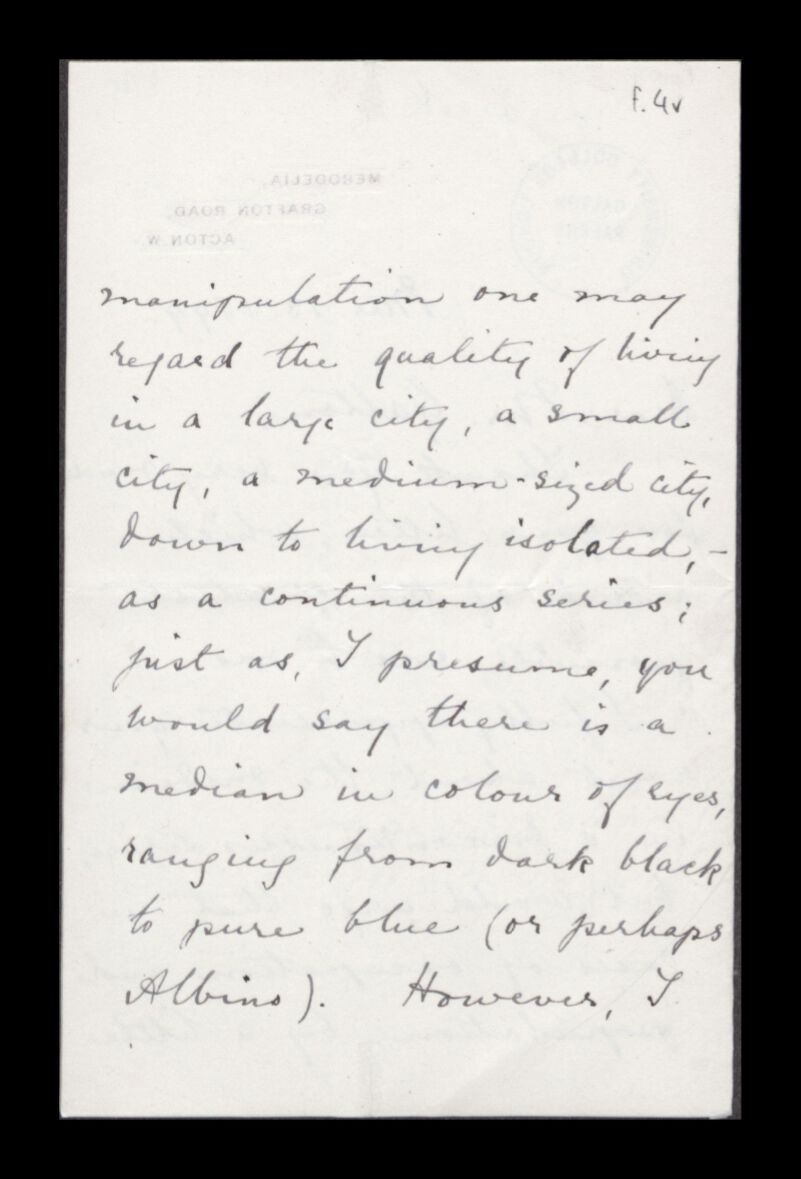 f. 4v
MERODELIA,
GRAFTON ROAD,
ACTON W.
manipulation one may
regard the quality of living
in a large city, a small
city, a medium-sized city,
down to living isolated, -
as a continuous series;
just as, I presume, you
would say there is a
median in colour of eyes,
ranging from dark black
to pure blue (or perhaps
Albino). However, I